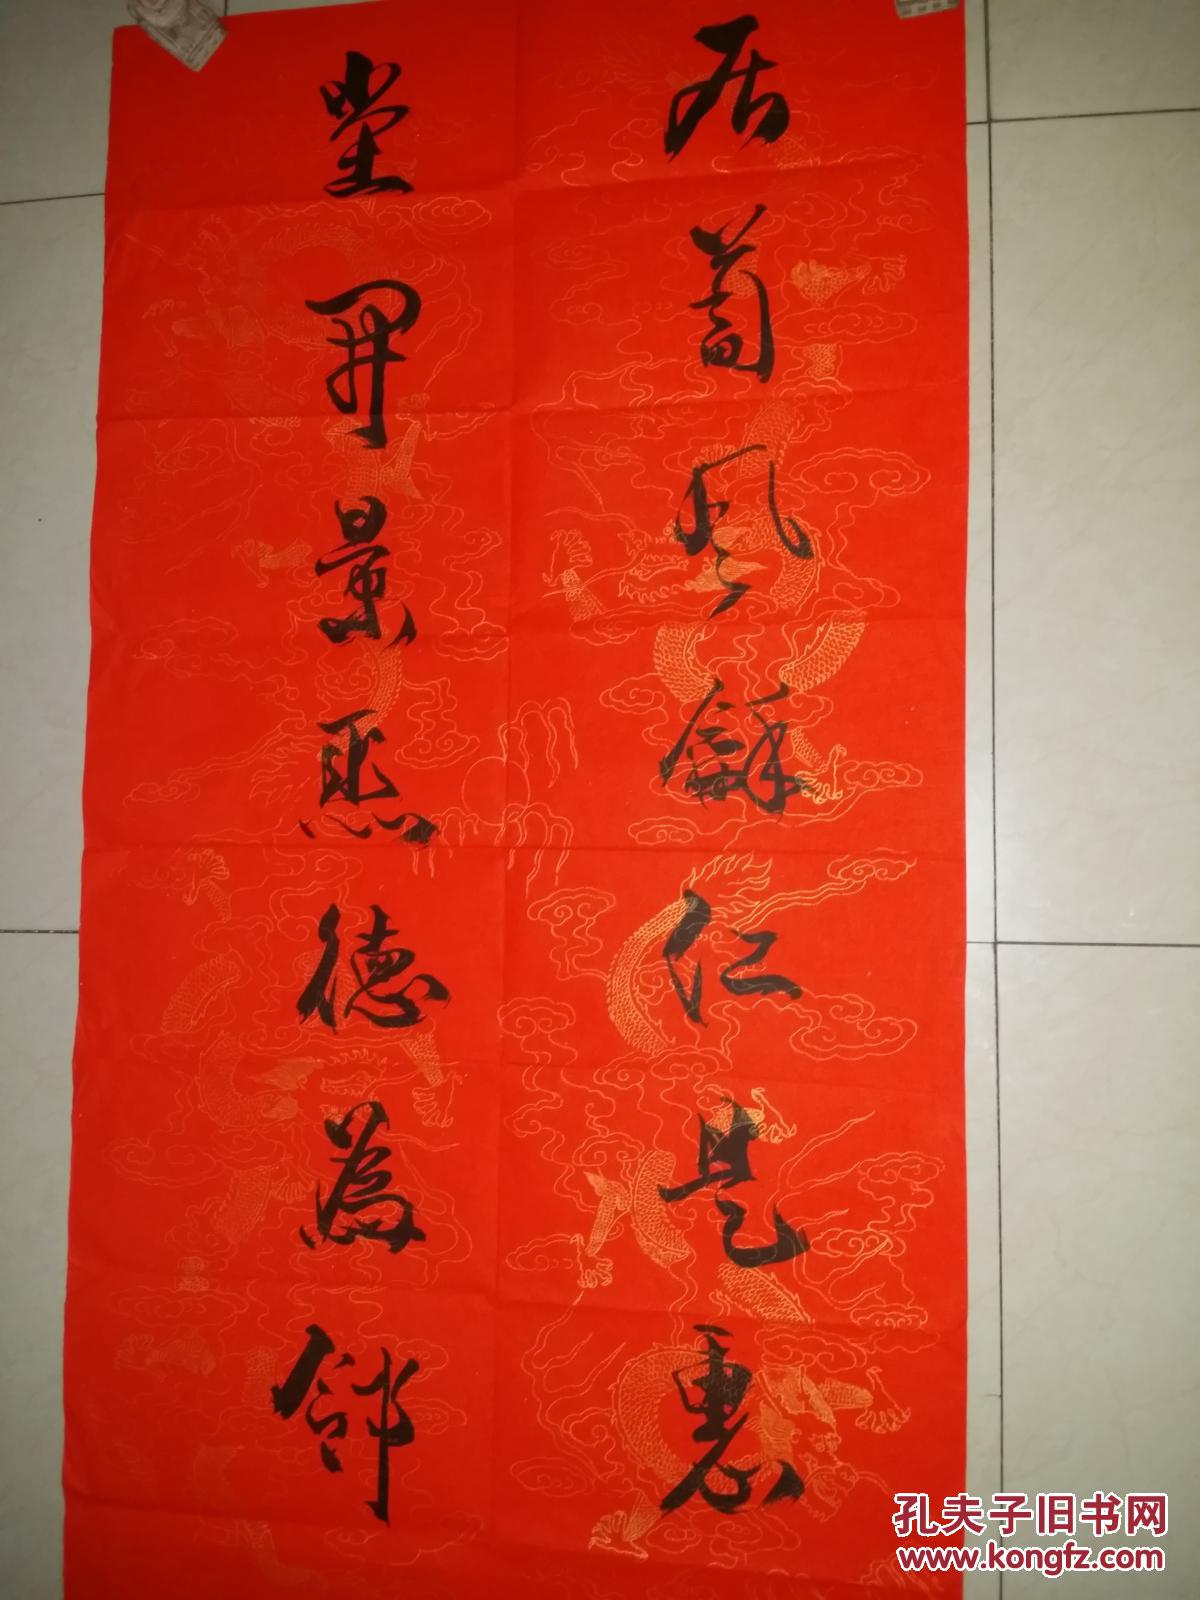 居蔔風龢仁是惠
堂開景德為邻
孔夫子旧书网
www.kongfz.com